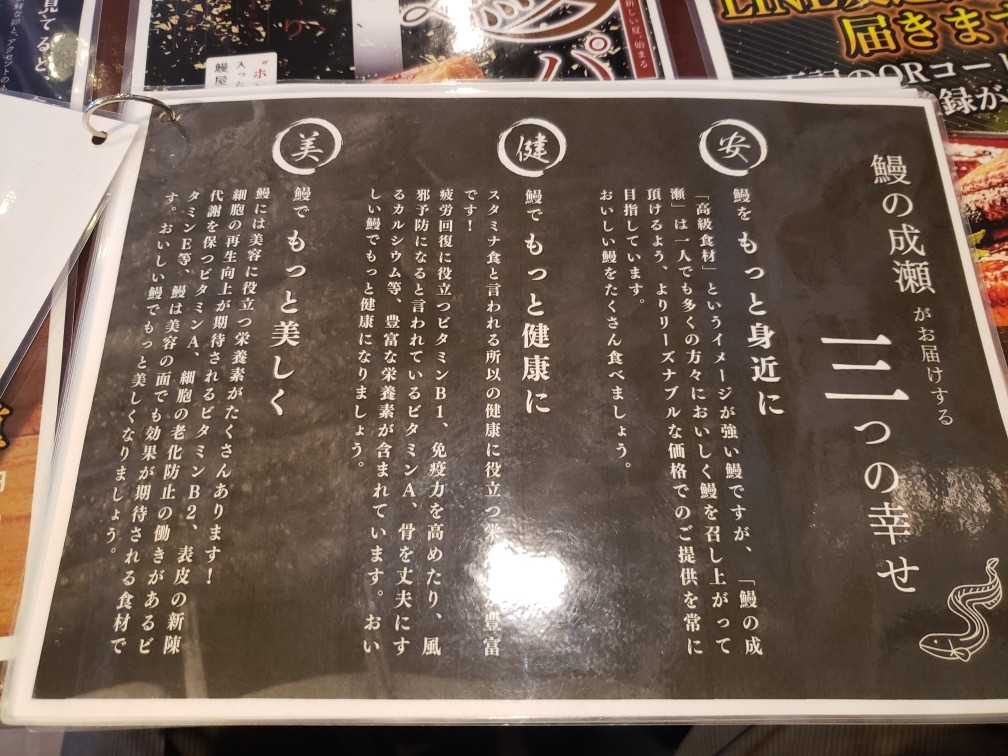 鰻の成瀬がお届けする
三つの幸せ
安
鰻をもっと身近に
「高級食材」というイメージが強い鰻ですが、「鰻の成
瀬」は一人でも多くの方々においしく鰻を召し上がって
頂けるよう、よりリーズナブルな価格でのご提供を常に
目指しています。
おいしい鰻をたくさん食べましょう。
健
鰻でもっと健康に
スタミナ食と言われる所以の健康に役立つ 豊富
です!
疲労回復に役立つビタミンB1、免疫力を高めたり、風
邪予防になると言われているビタミンA、骨を丈夫にす
るカルシウム等、豊富な栄養素が含まれています。おい
しい鰻でもっと健康になりましょう。
美
鰻でもっと美しく
鰻には美容に役立つ栄養素がたくさんあります!
細胞の再生向上が期待されるビタミンB2、表皮の新陳
代謝を保つビタミンA、細胞の老化防止の働きがあるビ
タミンE等、鰻は美容の面でも効果が期待される食材で
す。おいしい鰻でもっと美しくなりましょう。
LINE
届きま
QRコー
録が
パ
鰻屋
入っ
見てると